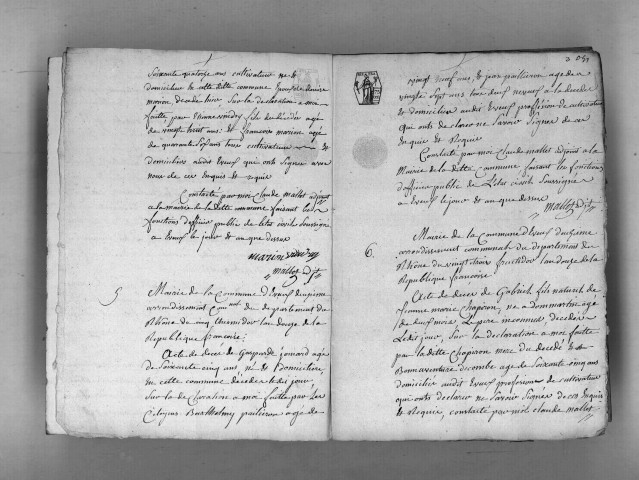 Soixante quatorze ans cultivateur ne &
domicilier de cette ditte commune
Sur la declaration a moi
faitte, par fils du decedée agé
de vingt huit ans & francois marion agé
de quarante ans tous cultivateur
domiciliés audit Eveux qui ont Signé avec
nous de ce Enquis & requis
Constaté par moi Claude mallot adjoint
a la mairie de la ditte commune faisant les
fonctions d'officier public de l'etat civil Soussigné
a Eveux le jour & an que dessus
marion
mallot adjt
5
Mairie de la Commune d'Eveux deuxieme
arrondissement Comunal du departement du
Rhône du cinq thermidor lan douze de la
Republique francoise.
Acte de deces de Gaspard joniard agé
de Soixante cinq ans, né & Domicilier,
en cette commune decedee ledit jour,
Sur la declaration a moi faitte par Les
Citoyens Barthelmy pailleron agé de
2
vingt neuf ans, & jean pailleron age de
vingte Sept ans tous deux neveux a la decede
& domiciliés audit Eveux profession de cultivateur
qui ont declaree ne Savoir Signer de ce
Enquis & Requis
Constaté par moi Claude mallot adjoint a la
Mairie de la ditte Commune faisant les fonctions
d'officier public de L'etat civile Soussigné
a Eveux le jour & an que dessus
mallot adjt
6.
Mairie de la Commune d'Eveux deuxieme
arrondissement communal du departement du
Rhône du vingt trois fructidor lan douze de la
Republique francoise.
Acte de deces de Gabriel fils naturel de
jeanne marie Chaperon, ne a dommartin agé
de neuf mois, Le pere inconnus decedée
Ledit jour, Sur la declaration a moi faitte
par la ditte Chaperon mere du decedé &
Bonnaventure decombe age de Soixante cinq ans
domicilier audit Eveux profession de cultivateur
qui ont declarer ne Savoir Signée de ce Enquis
& Requis, constaté par moi claude mallot